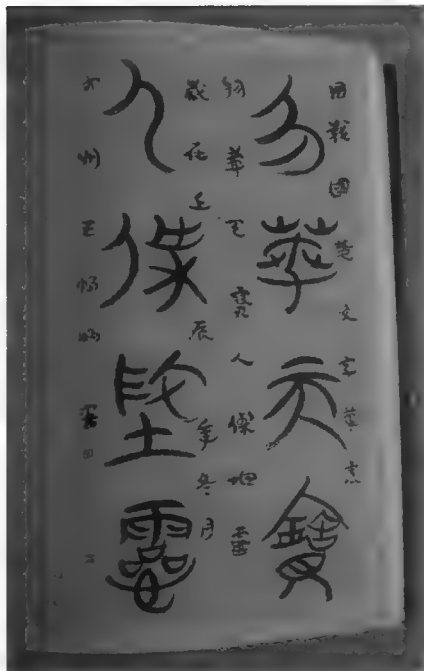 用戰國楚文字筆意
勿華天寶
物華天寶人傑地靈
歲在壬辰年冬月
人傑地靈
州王